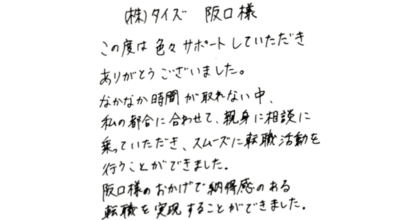 (株)タイズ 阪口様
この度は色々サポートしていただき
ありがとうございました。
なかなか時間が取れない中、
私の都合に合わせて、親身に相談に
乗っていただき、スムーズに転職活動を
行うことができました。
阪口様のおかげで納得感のある
転職を実現することができました。